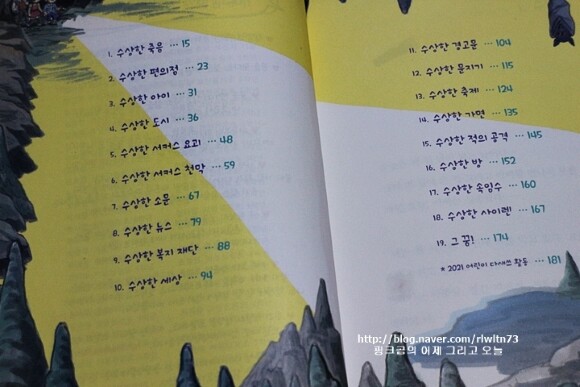 1. 수상한 죽음 ··· 15
2. 수상한 편의점 ··· 23
3. 수상한 아이 ··· 31
4. 수상한 도시 ··· 36
5. 수상한 서커스 요괴! ··· 48
6. 수상한 서커스 천막 ··· 59
7. 수상한 소문 ··· 67
8. 수상한 뉴스 ··· 79
9. 수상한 복지 재단 ··· 88
10. 수상한 세상 ··· 94
11. 수상한 경고문 ··· 104
12. 수상한 문지기 ··· 115
13. 수상한 축제 ··· 124
14. 수상한 가면 ··· 135
15. 수상한 적의 공격 ··· 145
16. 수상한 방 ··· 152
17. 수상한 속임수 ··· 160
18. 수상한 사이렌! ··· 167
19. 그 꿈! ··· 174
* 2021 어린이 다새쓰 활동 ··· 181
http://blog.naver.com/rlwltn73
핑크곰의 어제 그리고 오늘